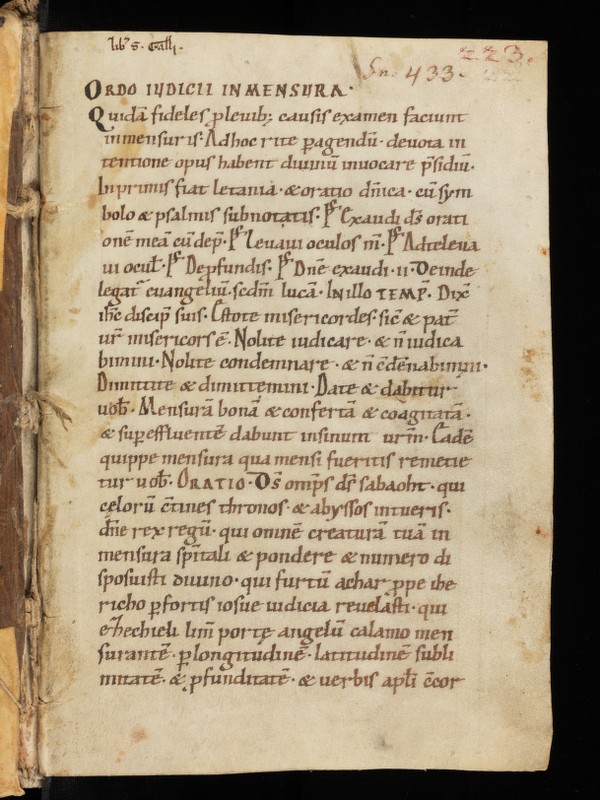 lib͛ S. Galli.
223.
Sn. 433.
ORDO IUDICII IN MENSURA·
Quidã fideles p̱ leuib; causis examen faciunt
in mensuris· Ad hoc rite p̱agendũ· deuota in
tentione opus habent diuinũ inuocare p̃sidiũ·
In primis fiat letania· & oratio dñica· cũ sym
bolo & psalmis subnotatis· Ps̃ Exaudi ds̃ orati
onẽ meã cũ dep̃· Ps̃ Leuaui oculos m̃· Ps̃ Ad te leua
ui ocul̃· Ps̃ De p̱fundis· Ps̃ Dñe exaudi· ii· Deinde
legat̃ euangeliũ· scdm̃ lucã· IN illo TEMP̃· Dix̃
ih̃c discip̃ suis· Estote misericordes· sic̃ & pat̃
ur̃ misericors ẽ· Nolite iudicare· & ñ iudica
bimini· Nolite condemnare· & ñ c̃dẽnabimini·
Dimittite & dimittemini· Date & dabitur
uob̃· Mensurã bonã & confertã & coagitatã·
& sup̱effluentẽ dabunt in sinum ur̃m· Eadẽ
quippe mensura qua mensi fueritis remetie
tur uob̃· ORATIO· Os̃ omp̃s ds̃ sabaoht· qui
celorũ c̃tines thronos· & abyssos intueris·
dñe rex regũ· qui omnẽ creaturã tuã in
mensura sp̃itali & pondere & numero di
sposuisti diuino· qui furtũ achar p̱pe ihe
richo p̱ fortis iosue iudicia reuelasti· qui
ezhechieli lim̃ portę angelũ calamo men
surantẽ· p̱ longitudinẽ· latitudinẽ subli
mitatẽ· & p̱funditatẽ· & uerbis apl̃i c̃cor